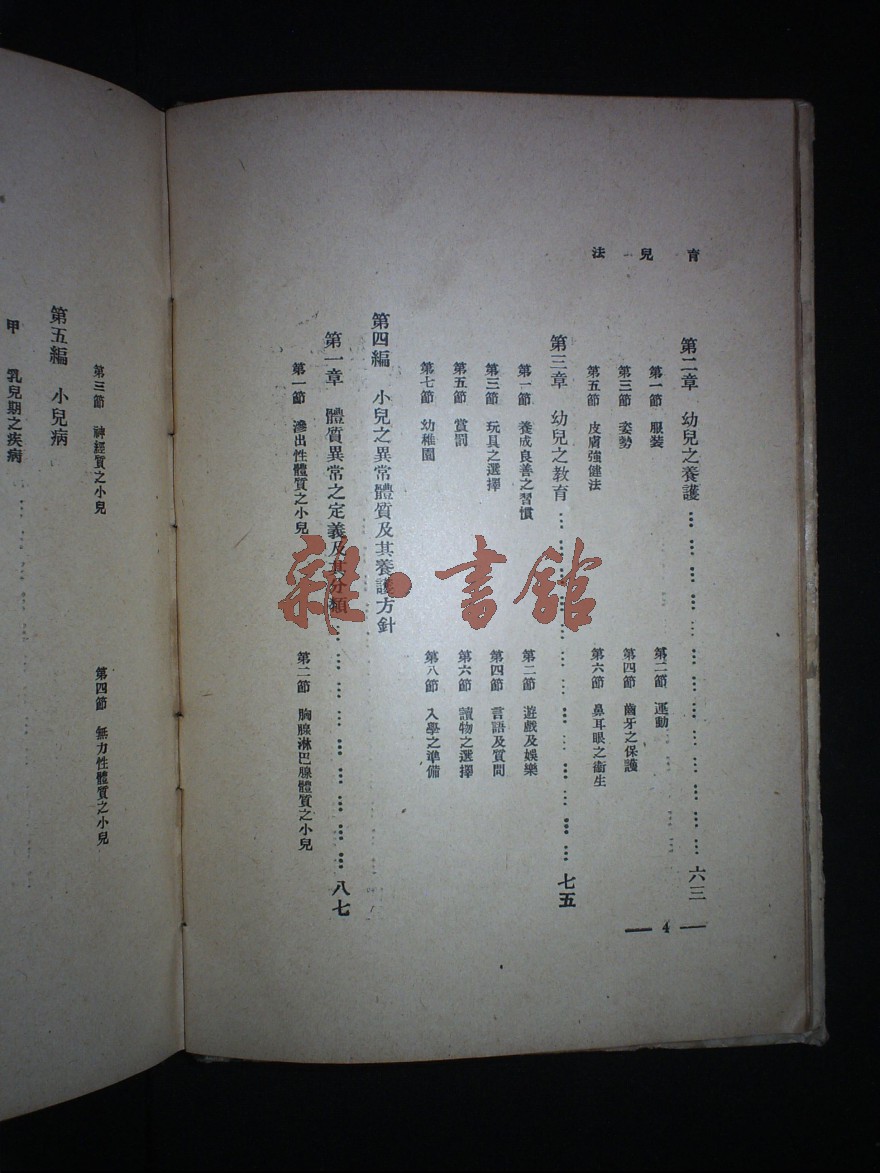 育兒法
第二章 幼兒之養護……六三
第一節 服裝
第二節 運動
第三節 姿勢
第四節 齒牙之保護
第五節 皮膚強健法
第六節 鼻耳眼之衞生
第三章 幼兒之教育……七五
第一節 養成良善之習慣
第二節 遊戲及娛樂
第三節 玩具之選擇
第四節 言語及質問
第五節 賞罰
第六節 讀物之選擇
第七節 幼稚園
第八節 入學之準備
第四編 小兒之異常體質及其養護方針
第一章 體質異常之定義及其分類……八七
第一節 滲出性體質之小兒
第二節 胸腺淋巴腺體質之小兒
4
第三節 神經質之小兒
第四節 無力性體質之小兒
第五編 小兒病
甲 乳兒期之疾病……
雜·書館